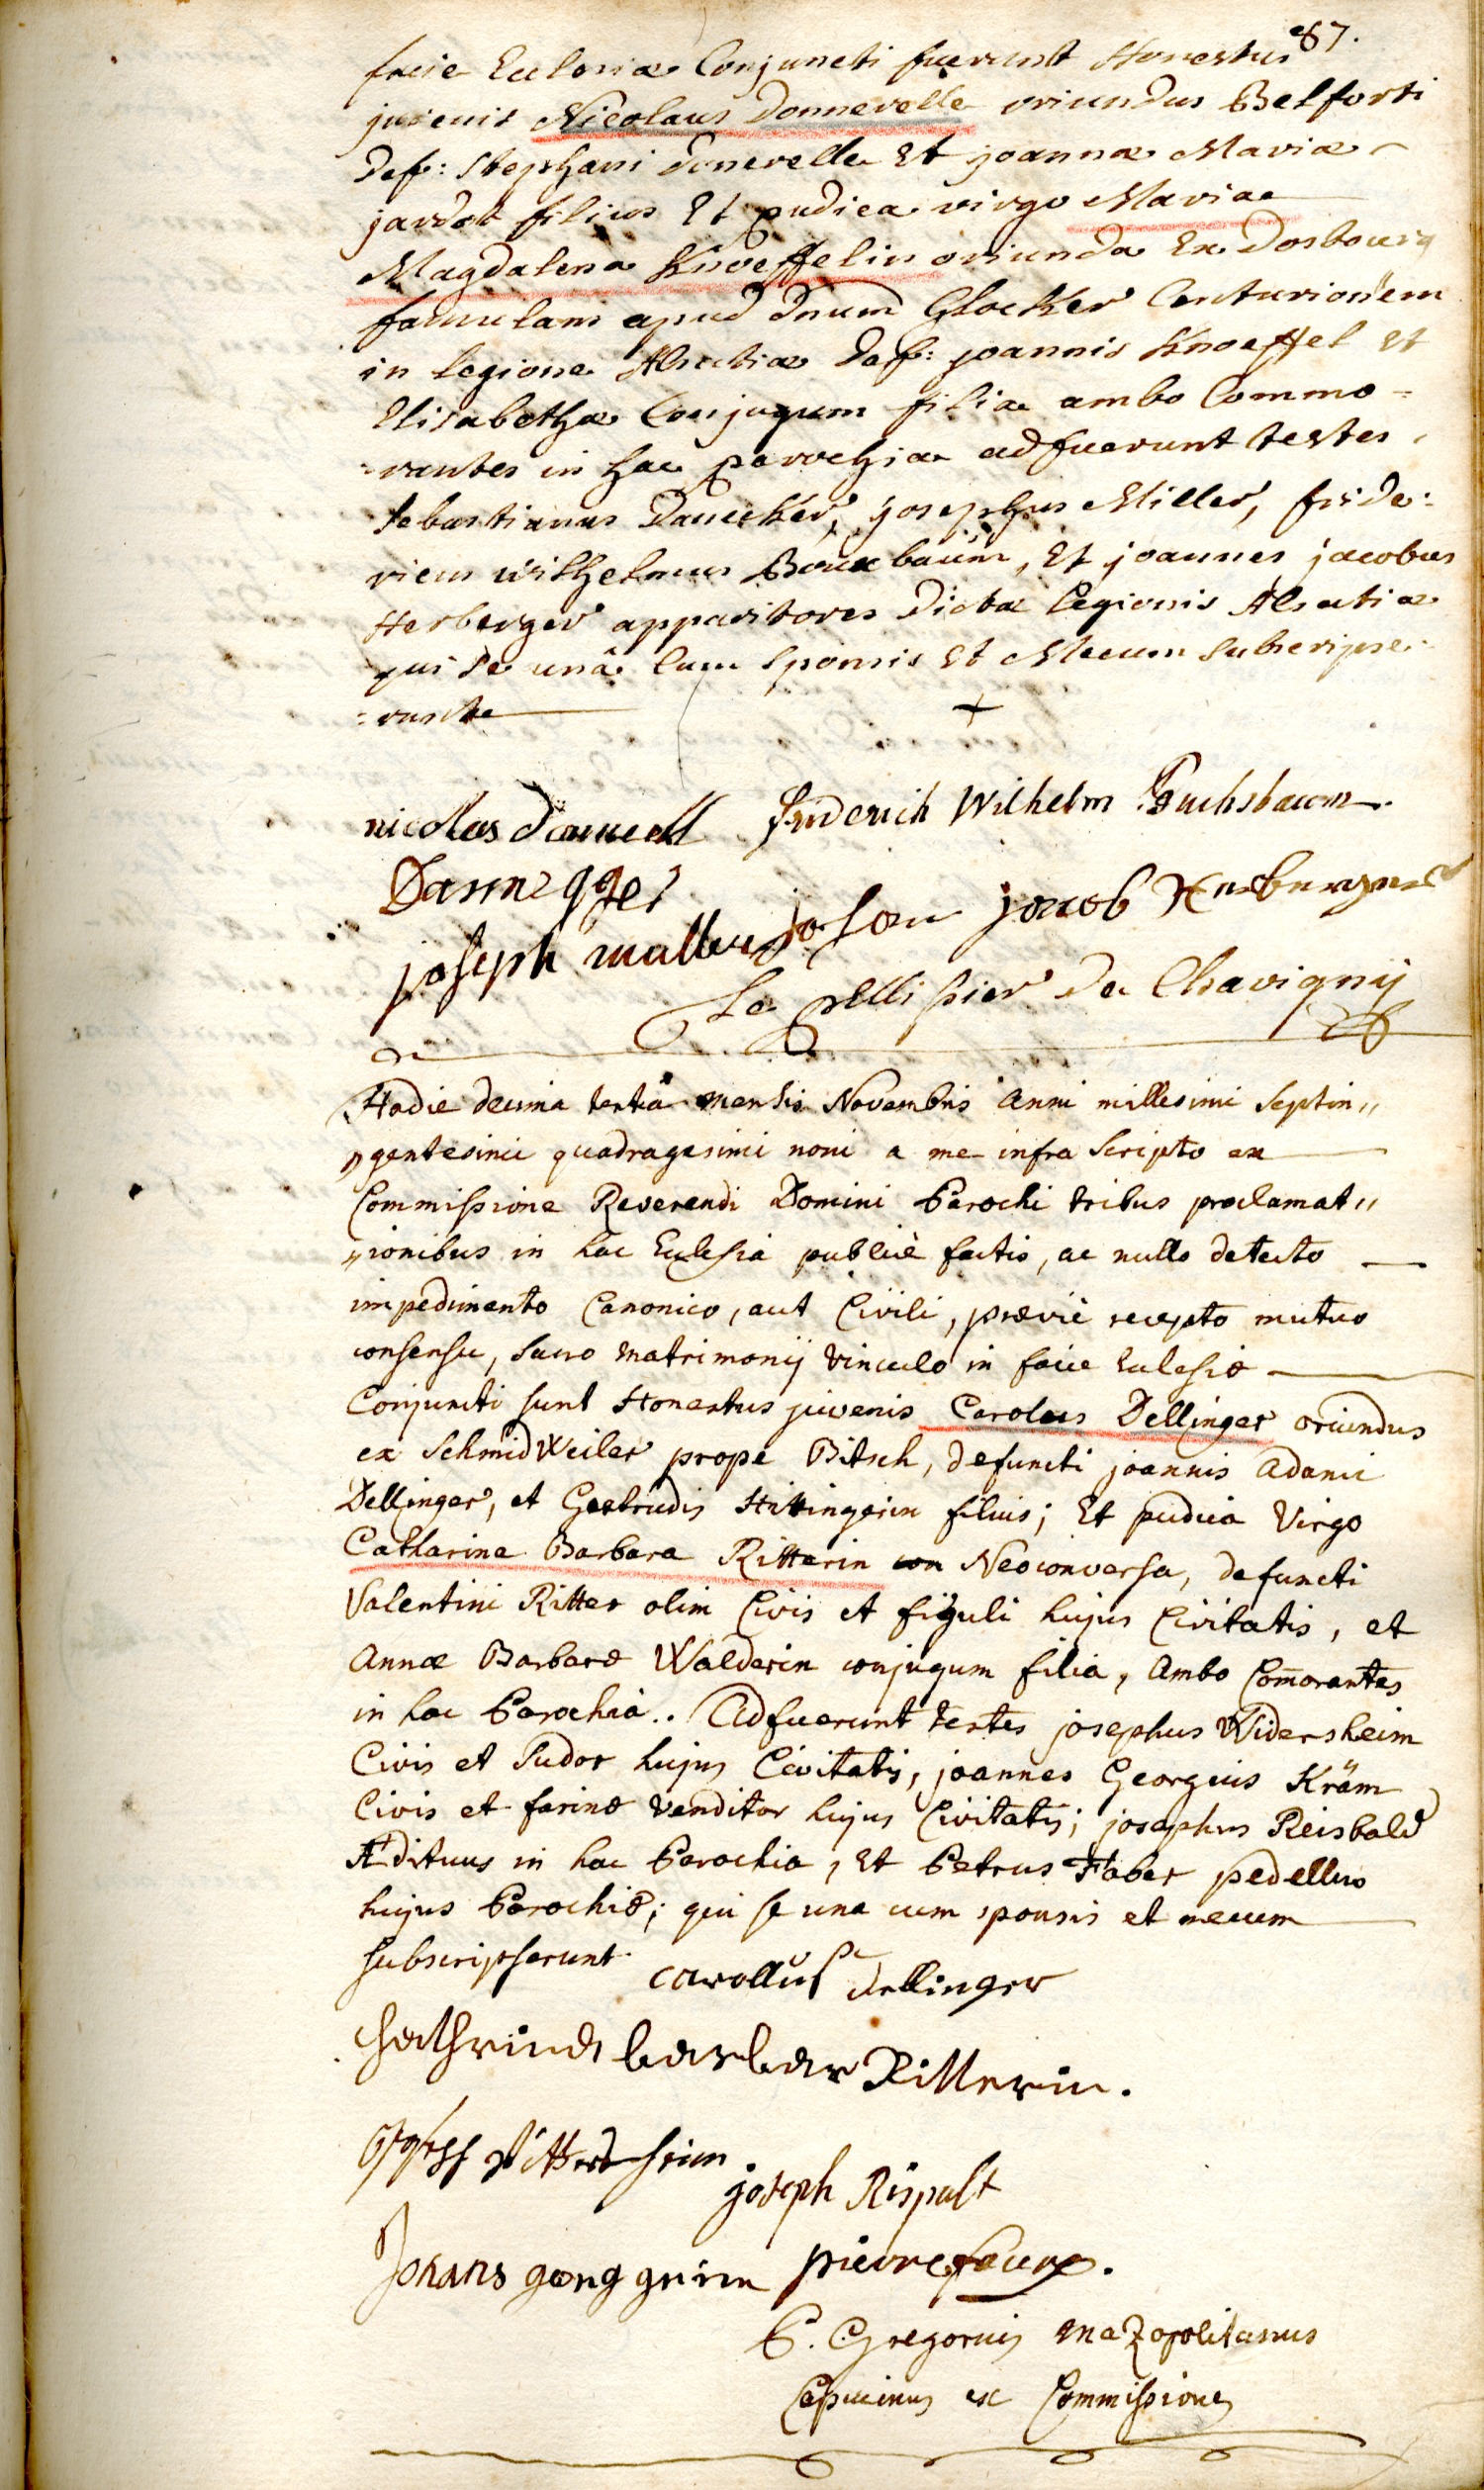 87.
facie Ecclesiæ Conjuncti fuerunt Honestus
juvenis Nicolaus Donnerelle oriundus Belforti
Def: Stephani Donerelle Et joannæ Mariæ
jardot filius Et pudica virgo Mariae
Magdalena Knoeffelin oriunda Ex Dosbourg
famulans apud Dnum Glocker Centurionem
in legione Alsatiæ Def: joannis Knoeffel Et
Elisabethæ Conjugum filia ambo Commo=
=rantes in hac parochia adfuerunt testes
Sebastianus Daneker, josephus Miller, fride:
ricus wilhelmus Bouxbaum, Et joannes jacobus
Herberger apparitores Dictæ legionis Alsatiæ
qui se unâ Cum Sponsis Et Mecum Subscripse:
:runt
+
nicolas donnerell friderich Wilhelm Buchsbaum.
Dannegger
joseph muller johan jacob Herberger
Le pellissier De Chavignij
Hodie decima tertiâ mensis Novembris anni millesimi Septin„
„gentesimi quadragesimi noni a me infra Scripto ex
Commissione Reverendi Domini Parochi tribus proclamat„
„ionibus in hac Ecclesiâ publicè factis, ac nullo detecto
impedimento Canonico, aut Civili, præviè recepto mutuo
consensu, Sacro matrimonij vinculo in facie Ecclesiæ
Conjuncti sunt Honestus juvenis Carolus Dellinger oriundus
ex Schmidweiler prope Bitsch, defuncti joannis adami
Dellinger, et Gertrudis Hittingerin filius; Et pudica Virgo
Catharina Barbara Ritterin con Neoconversa, defuncti
Valentini Ritter olim Civis et figuli hujus Civitatis, et
Annæ Barbaræ Walderin conjugum filia, Ambo Com̄orantes
in hac Parochiâ.. Adfuerunt testes josephus Widersheim
Civis et Sudor hujus Civitatis, joannes Georgius Kräm
Civis et farinæ venditor hujus Civitatis; josephus Reisbald
Ædituus in hac Parochia, Et Petrus Faber pedellus
hujus Parochiæ; qui se una cum sponsis et mecum
subscripserunt
carollus dellinger
Cathrina barbar Ritterin.
joseph Rispalt
Johans georg grim pierre faure.
P. Gregorius
Capucinus ex Commissione